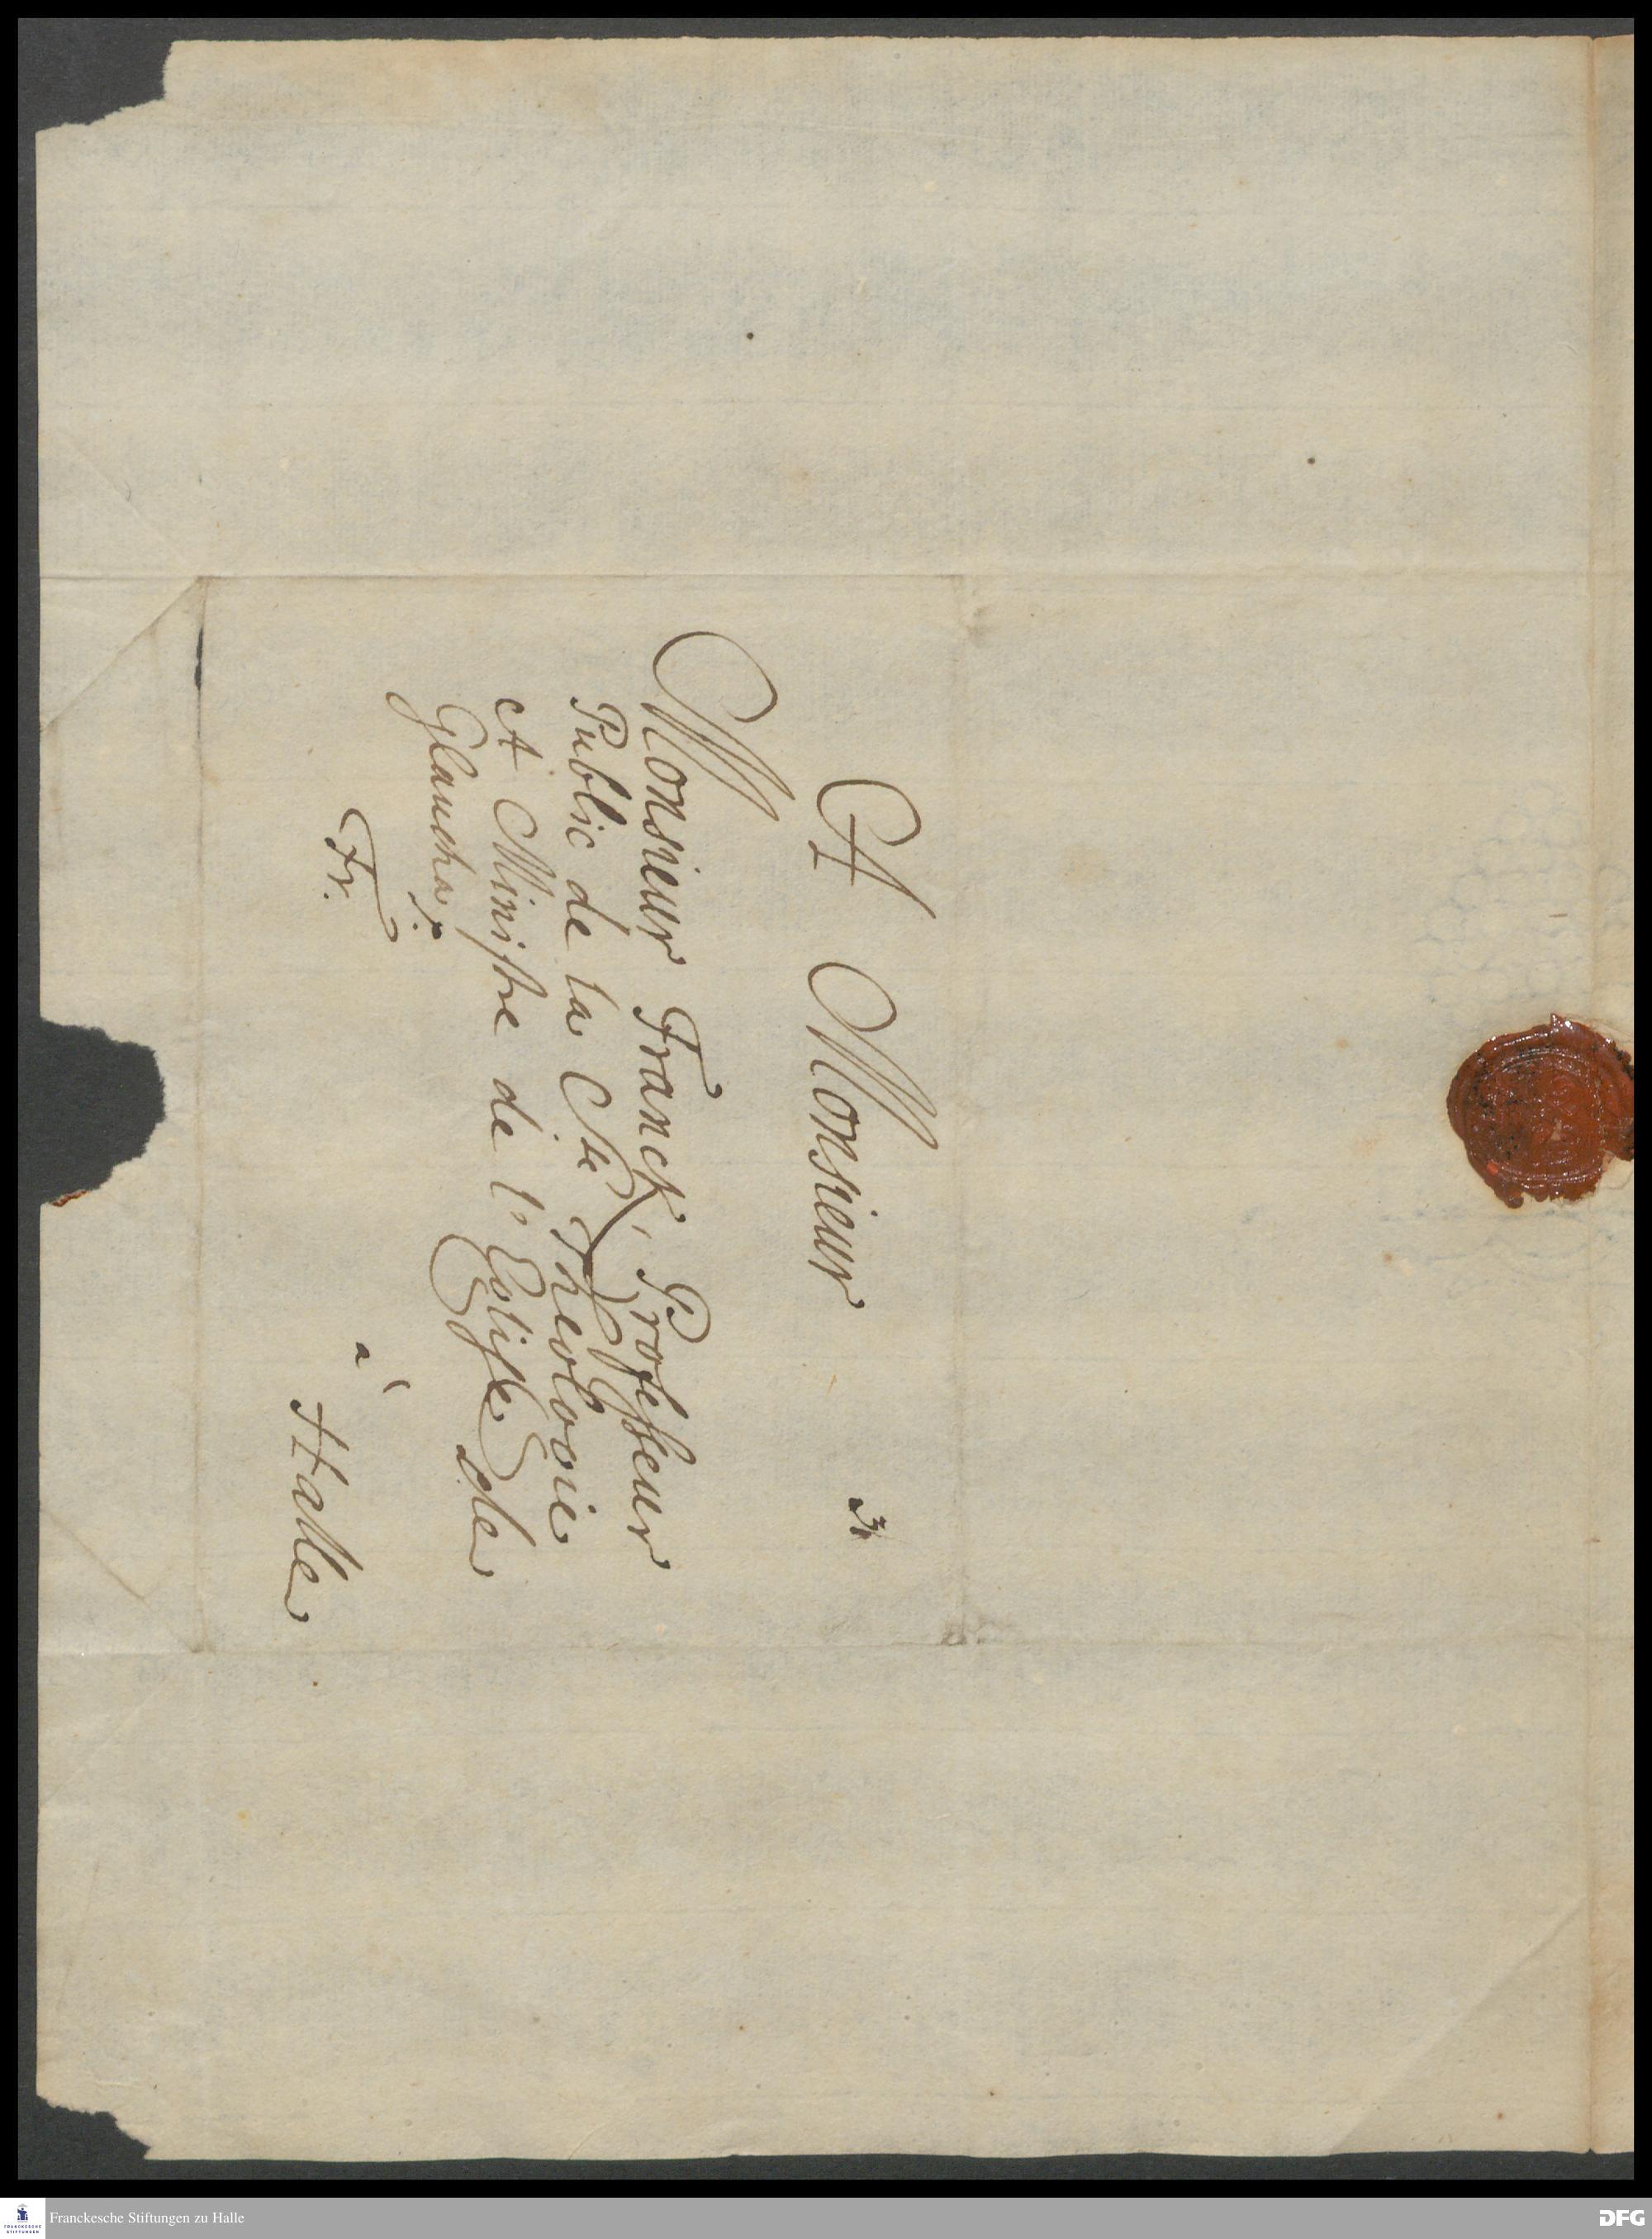 A Monsieur
3
Monsieur Franck, Professeur
Public de la Ste Theologie
et Ministre de l' Eglisse de
Glaucha p:
Fr.
à
Halle
Franckesche Stiftungen zu Halle
FRANCKESCHE
STIFTUNGEN
DFG